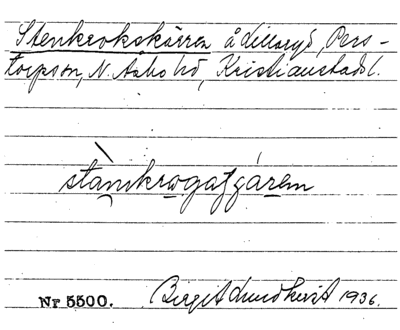 Stenkrokskärren å Lillaryd, Pers-
torpssn, N. Åsbo hd, Kristianstads l.
stànkrogafgáren
Nr 5500. Birgit Lundkvist 1936.